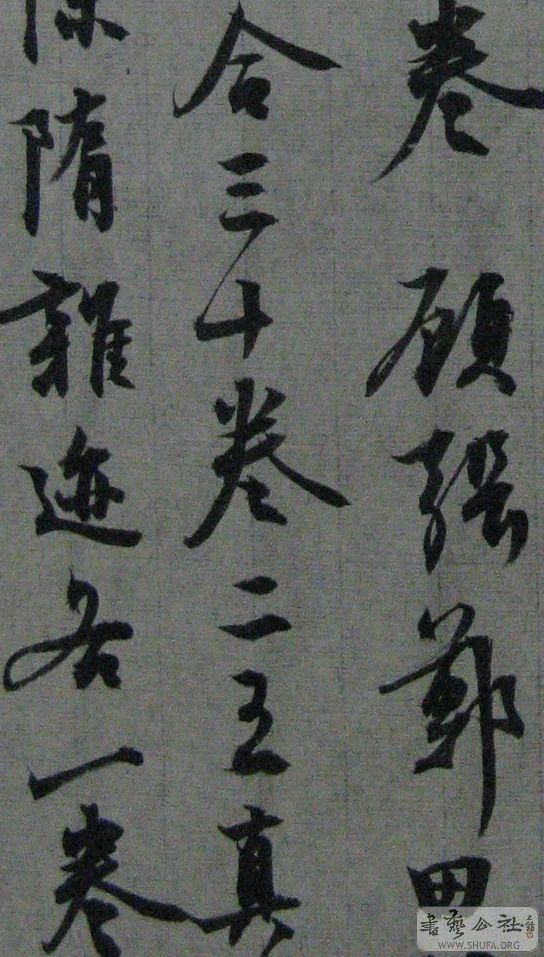 卷 顾张郑田
合三十卷二王真
陈隋杂迹各一卷
書藝公社
WWW.SHUFA.ORG